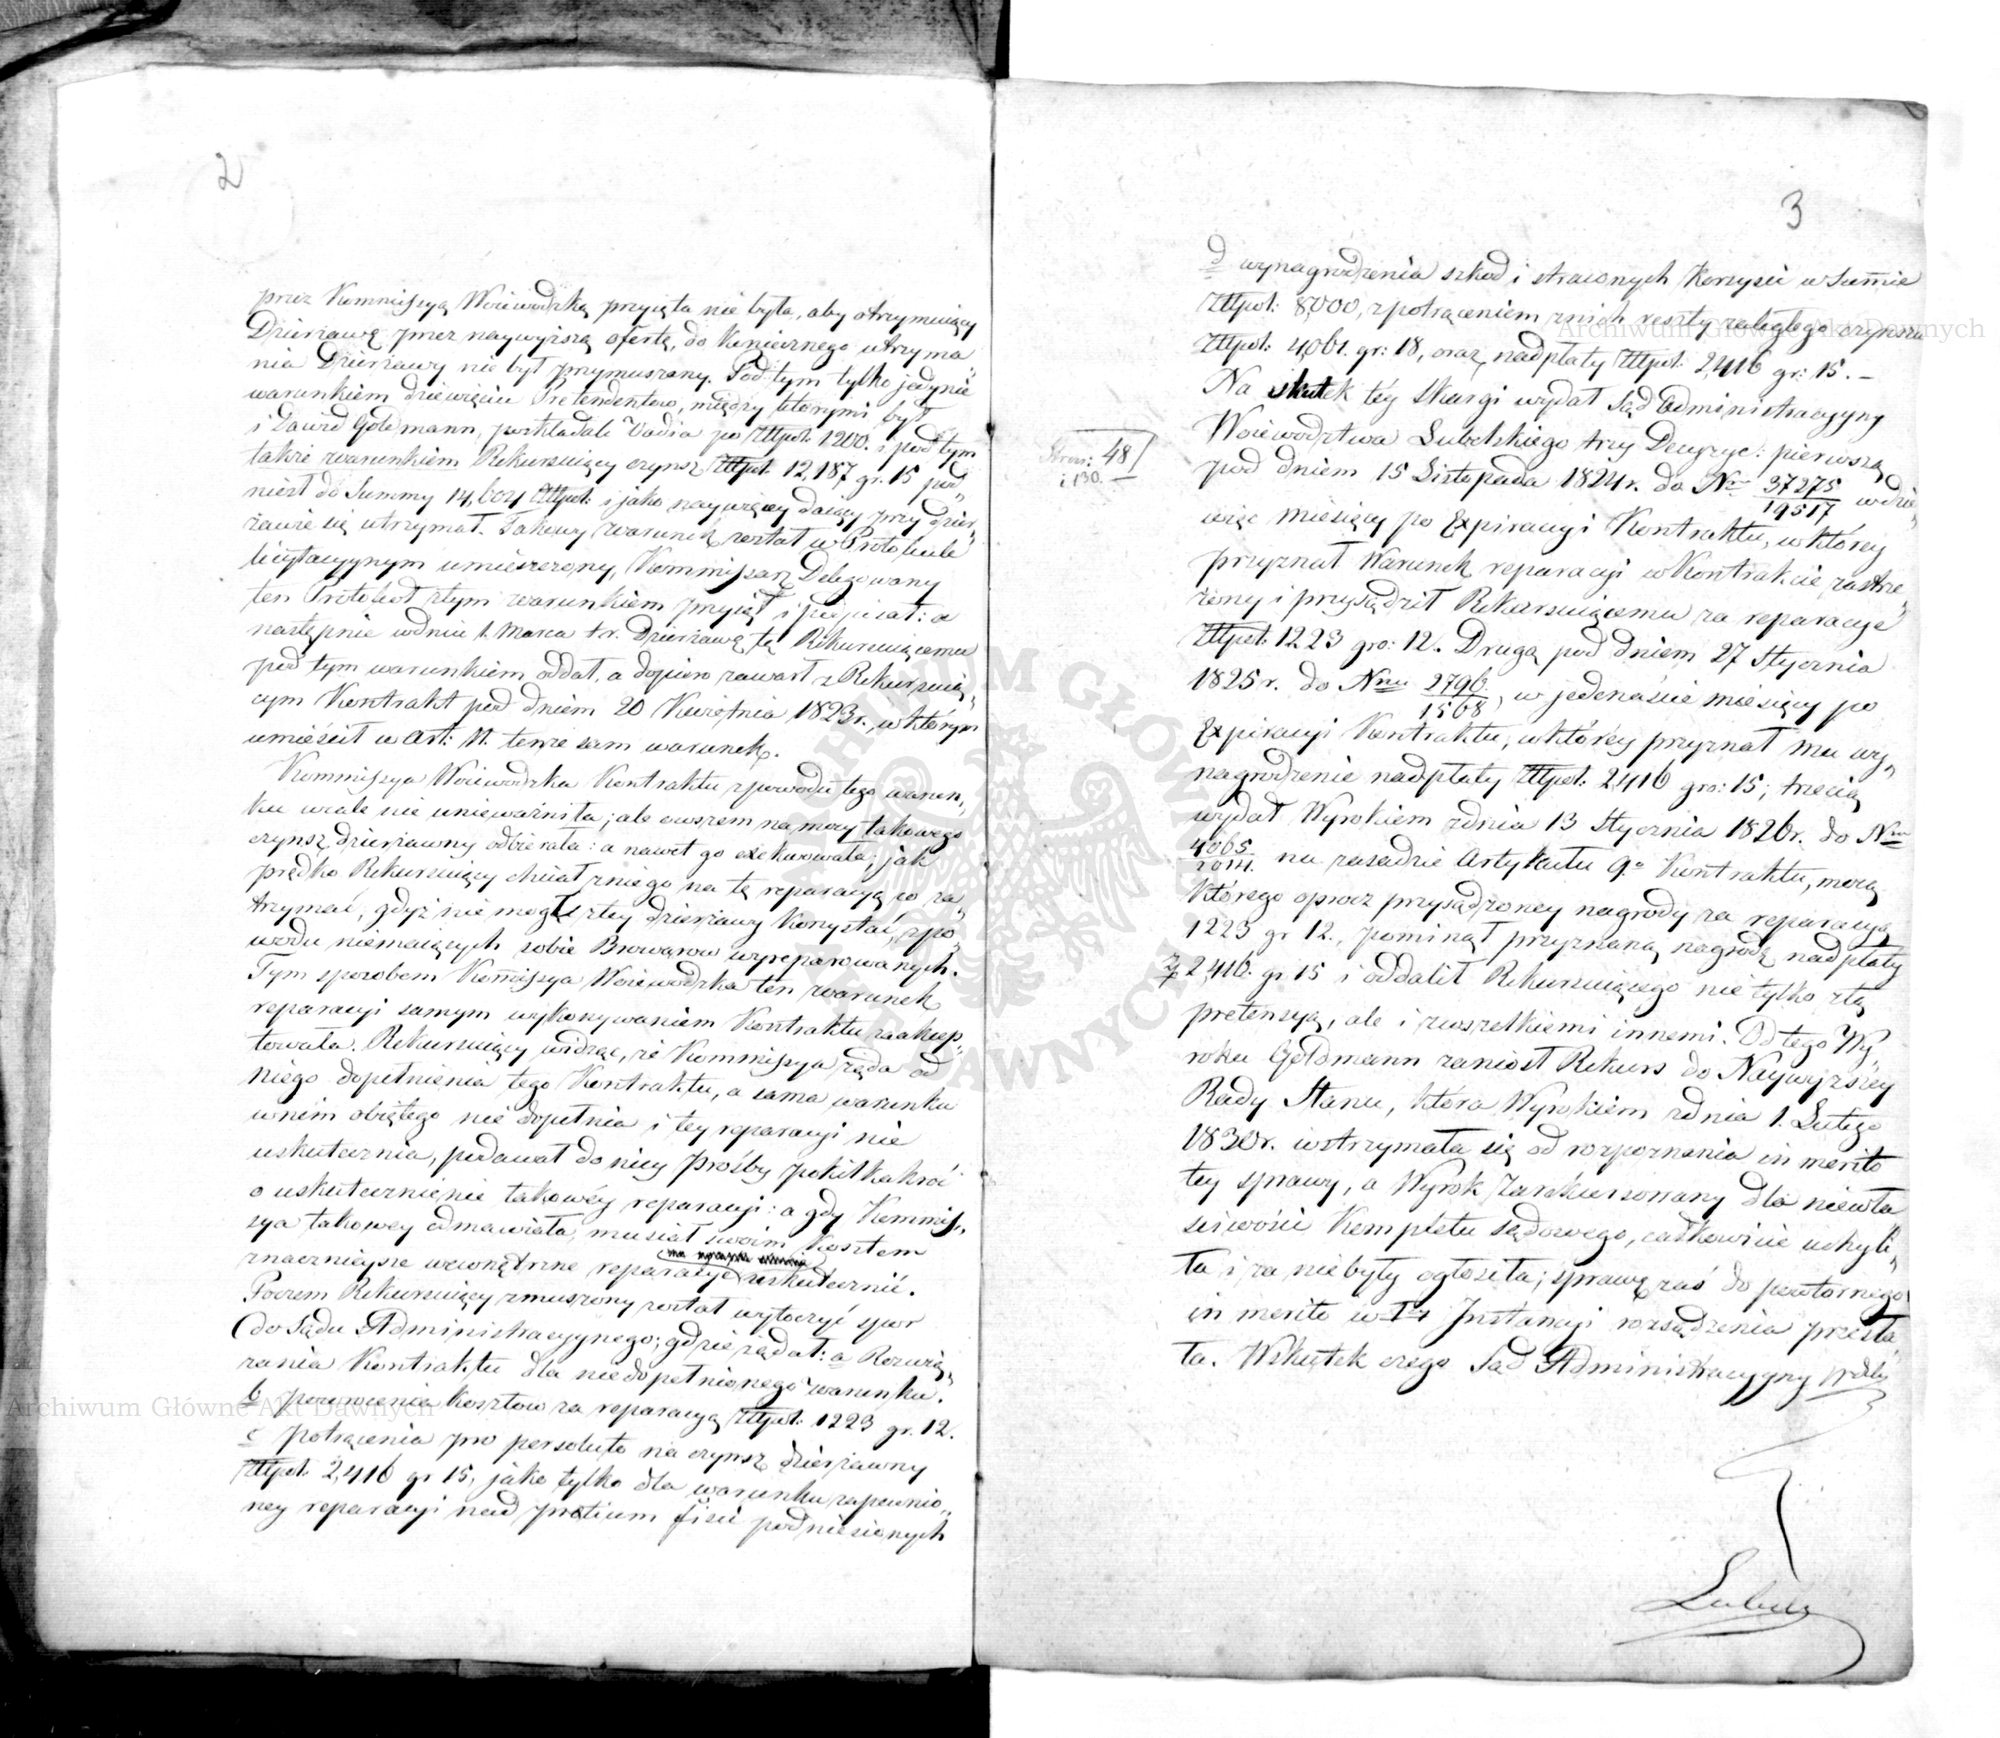 2
przez Kommissyą Woiewodzką przyięta nie była, aby otrzymuiący
Dzierżawę przez naywyższą ofertę, do koniecznego utrzyma„
nia Dzierżawy nie był przymuszony. Pod tym tylko jedynie
warunkiem dziewięciu Pretendentow, między ktorymi był
i Dawid Goldmann, poskładali Vadia po Złłpol: 1200. i pod tym
takze warunkiem Rekursuiący czynsz Złłpol: 12,187 gr. 15 pod„
niosł do Summy 14,604 Złłpol: i jako naywięcey daiący przy dzier„
żawie się utrzymał. Takowy warunek został w Protokule
licytacyynym umieszczony, Kommissarz Delegowany
ten Protokoł z tym warunkiem przyiął i podpisał: a
następnie w dniu 1. Marca t. r. Dzierżawę tę Rekursuiącemu
pod tym warunkiem oddał, a dopiero zawarł z Rekursuią„
cym Kontrakt pod dniem 20 Kwietnia 1823 r., w którym
umieścił w Art: 11. tenże sam warunek.
Kommissya Woiewodzka Kontraktu z powodu tego warun„
ku wcale nie unieważniła; ale owszem na mocy takowego
czynsz dzierżawny odbierała: a nawet go exekwowała; jak
prędko Rekursuiący chciał z niego na tę reparacyą co za„
trzymać, gdyż nie mógł z tey dzierżawy korzystać, z po„
wodu niemaiących sobie Browarow wyreparowanych.
Tym sposobem Kommissya Woiewodzka ten warunek
reparacyi samym wykonywaniem Kontraktu zaakcep„
towała. Rekursuiący widząc, że Kommissya żąda od
niego dopełnienia tego Kontraktu, a sama warunku
w nim obiętego nie dopełnia i tey reparacyi nie
uskutecznia, podawał do niey prośby po kilkakroć
o uskutecznienie takowéy reparacyi: a gdy Kommis„
sya takowey odmawiała, musiał swoim kosztem
znacznieysze wewnętrzne reparacye uskutecznić.
Poczem Rekursuiący zmuszony został wytoczyć spor
do Sądu Administracyynego; gdzie żądał: a Rozwią„
zania Kontraktu dla niedopełnionego warunku.
b powrocenia kosztow za reparacyą Złłpol: 1223 gr. 12.
c potrącenia pro persoluto na czynsz dzierżawny
Złłpol: 2,416 gr 15, jako tylko dla warunku zapewnio„
ney reparacyi nad pretium fisci podniesionych
3
d wynagrodzenia szkod i straconych korzyści w Summie
Złłpol: 8,000, z potrąceniem z nich reszty zaległego czynszu
Złłpol: 4,061. gr: 18, oraz nadpłaty Złłpol: 2,416 gr: 15. –
Na skutek téy skargi wydał Sąd Administracyyny
Woiewodztwa Lubelskiego trzy Decyzye: pierwszą
48
i 130. –
pod dniem 15 Listopada 1824 r. do Nru 37275/19517 w dzie„
więć miesięcy po Expiracyi Kontraktu, w którey
przyznał Warunek reparacyi w Kontrakcie zastrze„
żony i przysądził Rekursuiącemu za reparacye
Złłpol: 1223 gro: 12. Drugą pod dniem 27 Stycznia
1825 r. do Nru 2796/1568, w jedenaście miesięcy po
Expiracyi Kontraktu, w którey przyznał mu wy„
nagrodzenie nadpłaty Złłpol: 2,416 gro: 15; trzecią
wydał Wyrokiem z dnia 13 Stycznia 1826 r. do Nru
4065/2014. na zasadzie Artykułu 9o Kontraktu, mocą
którego oprocz przysądzoney nagrody za reparacyą
1223 gr 12., pominął przyznaną nagrodę nadpłaty
2,416. gr 15 i oddalił Rekursuiącego nie tylko z tą
pretensyą, ale i z wszelkiemi innemi. Od tego Wy„
roku Goldmann zaniosł Rekurs do Naywyższey
Rady Stanu, która Wyrokiem z dnia 1. Lutego
1830 r. wstrzymała się od rozpoznania in merito
tey sprawy, a Wyrok zarekursowany dla niewła
ściwości Kompletu sądowego, całkowicie uchyli„
ła i za niebyły ogłosiła; sprawę zaś do powtornego
in merito w Iéy Instancyi rozsądzenia przesła„
ła. Wskutek czego Sąd Administracyyny